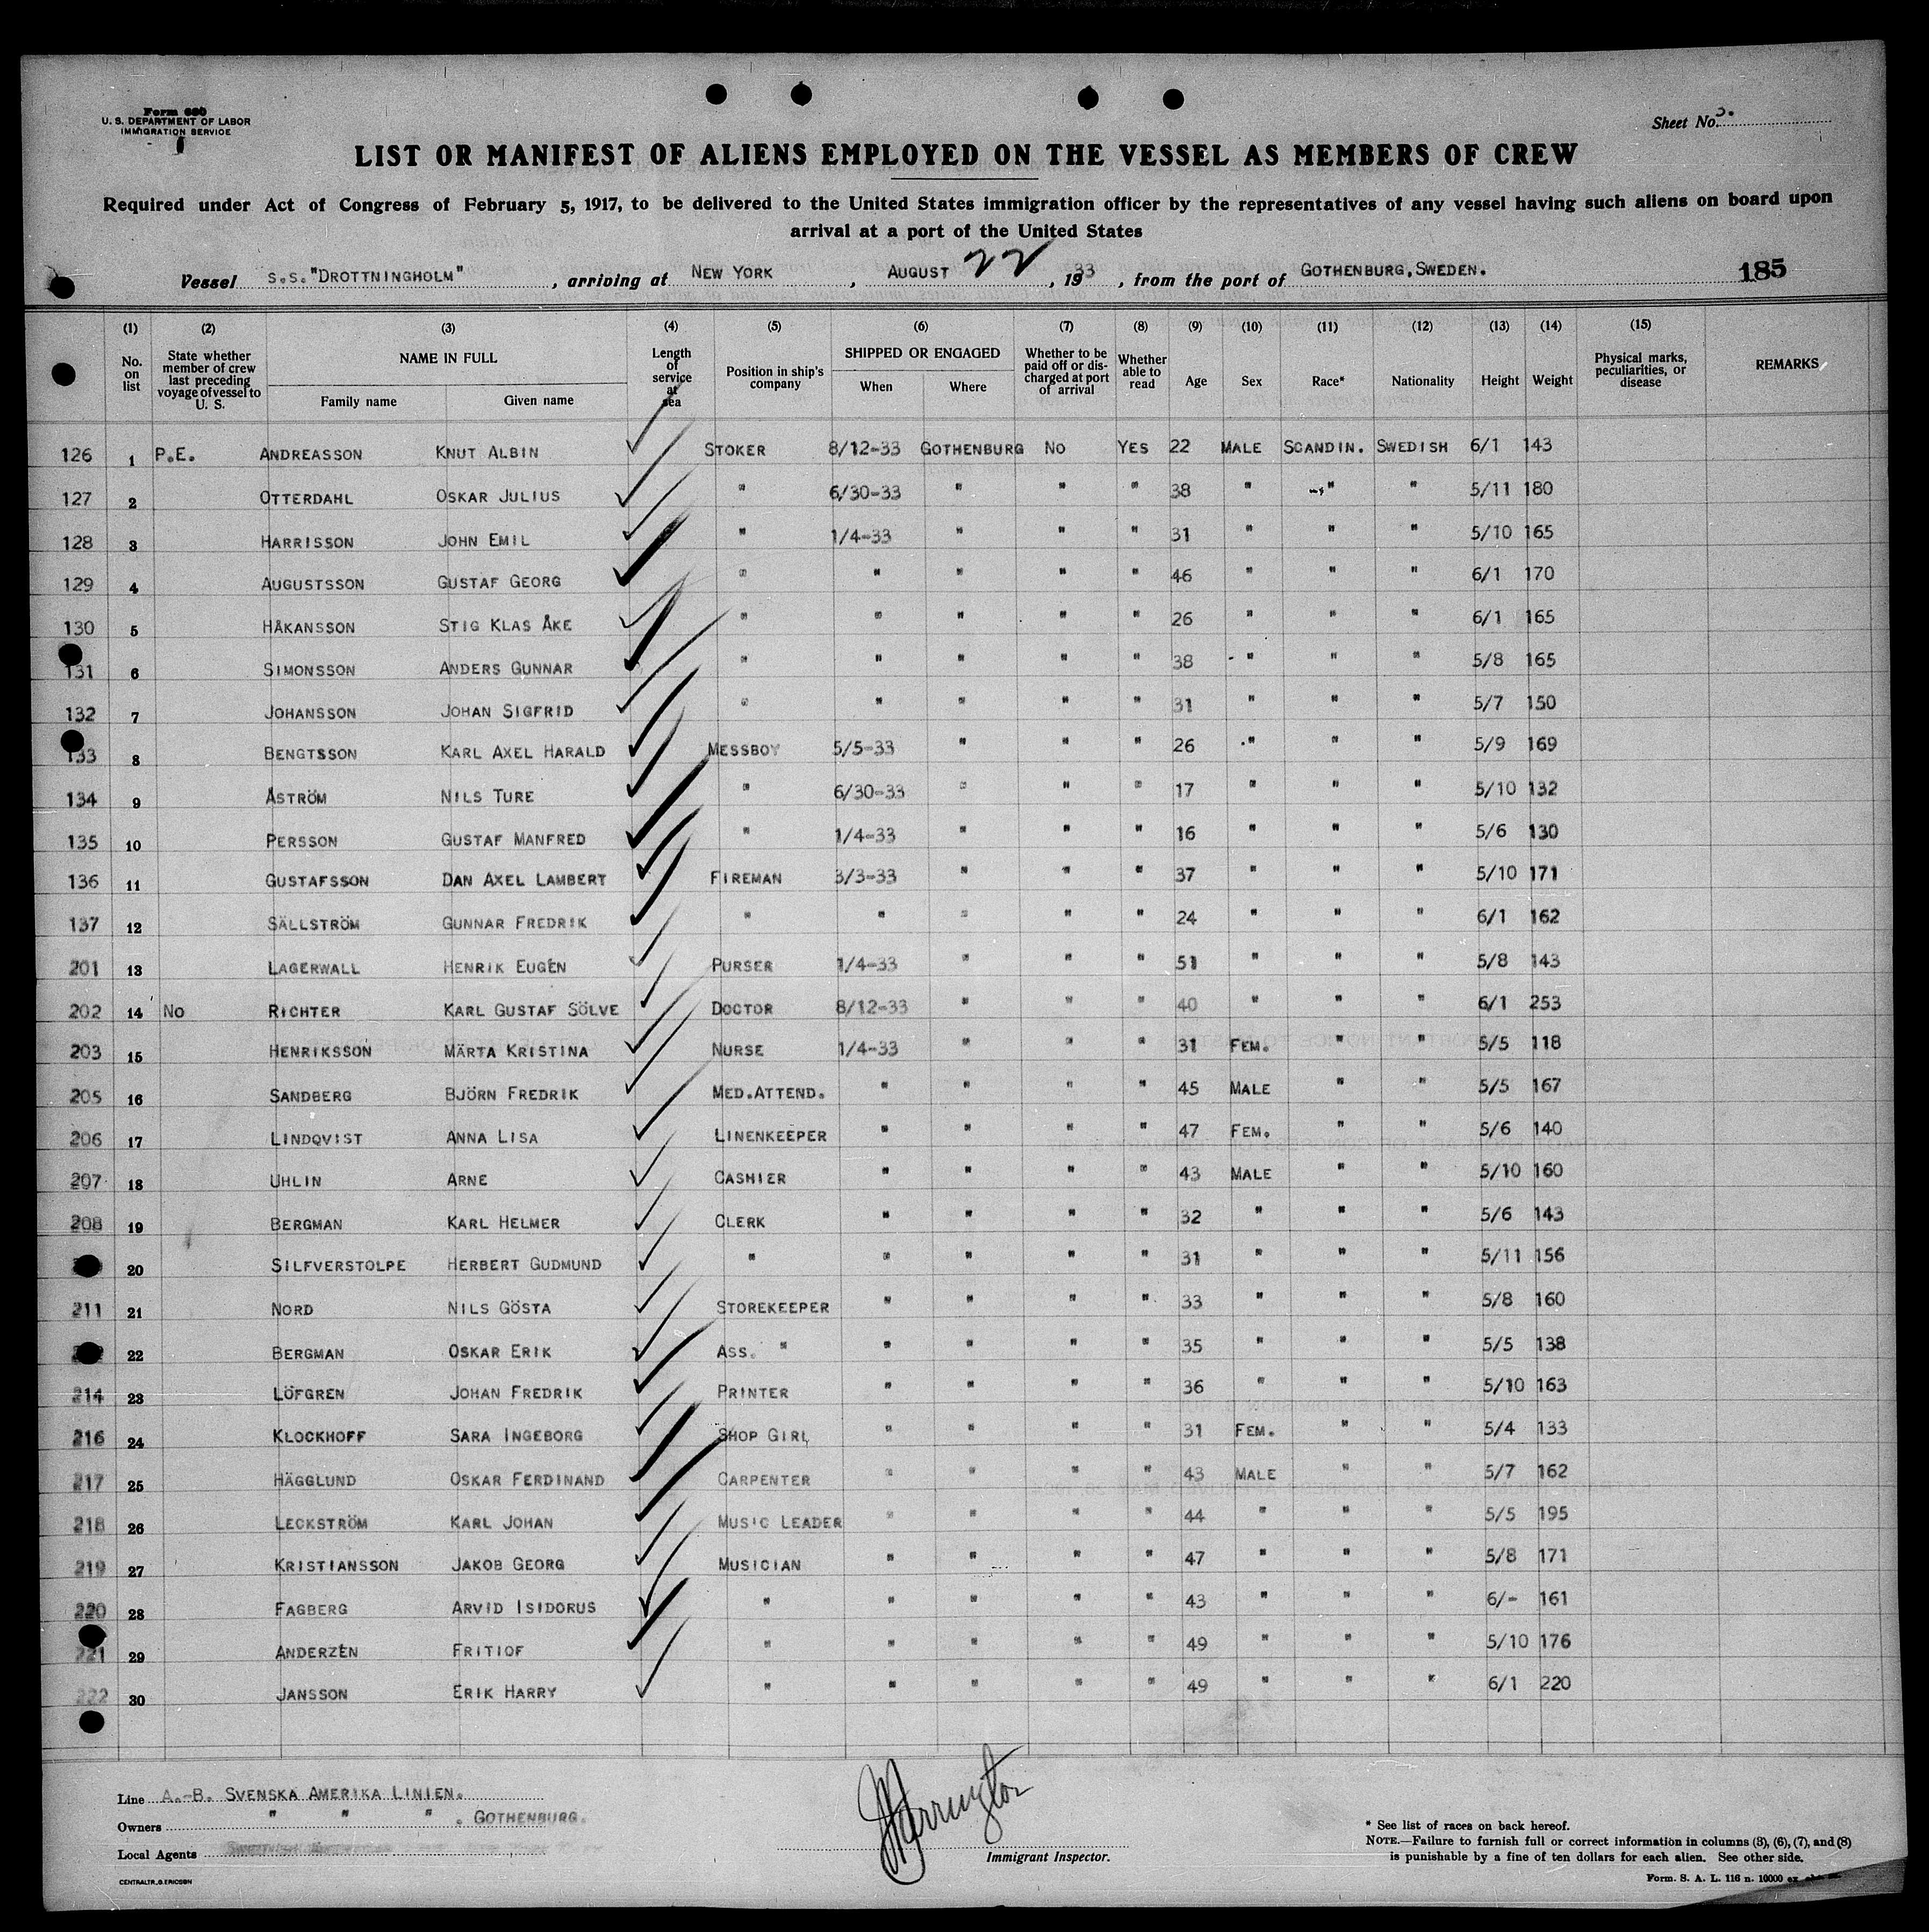 Form 680
U. S. DEPARTMENT OF LABOR
IMMIGRATION SERVICE
Sheet No.
LIST OR MANIFEST OF ALIENS EMPLOYED ON THE VESSEL AS MEMBERS OF CREW
Required under Act of Congress of February 5, 1917, to be delivered to the United States immigration officer by the representatives of any vessel having such aliens on board upon
arrival at a port of the United States
Vessel S.S."DROTTNINGHOLM" , arriving at NEW YORK , AUGUST 22 , 1933 , from the port of GOTHENBURG,SWEDEN. 185
(1) (2) (3) (4) (5) (6) (7) (8) (9) (10) (11) (12) (13) (14) (15)
No. on list State whether member of crew last preceding voyage of vessel to U. S. NAME IN FULL Family name Given name Length of service at sea Position in ship's company SHIPPED OR ENGAGED When Where Whether to be paid off or discharged at port of arrival Whether able to read Age Sex Race* Nationality Height Weight Physical marks, peculiarities, or disease REMARKS
126 1 P.E. ANDREASSON KNUT ALBIN STOKER 8/12-33 GOTHENBURG NO YES 22 MALE SCANDIN. SWEDISH 6/1 143
127 2 OTTERDAHL OSKAR JULIUS " 6/30-33 " " " 38 " " " 5/11 180
128 3 HARRISSON JOHN EMIL " 1/4-33 " " " 31 " " " 5/10 165
129 4 AUGUSTSSON GUSTAF GEORG " " " " " 46 " " " 6/1 170
130 5 HÅKANSSON STIG KLAS ÅKE " " " " " 26 " " " 6/1 165
131 6 SIMONSSON ANDERS GUNNAR " " " " " 38 " " " 5/8 165
132 7 JOHANSSON JOHAN SIGFRID " " " " " 31 " " " 5/7 150
133 8 BENGTSSON KARL AXEL HARALD MESSBOY 5/5-33 " " " 26 " " " 5/9 169
134 9 ÅSTRÖM NILS TURE " 6/30-33 " " " 17 " " " 5/10 132
135 10 PERSSON GUSTAF MANFRED " 1/4-33 " " " 16 " " " 5/6 130
136 11 GUSTAFSSON DAN AXEL LAMBERT FIREMAN 3/3-33 " " " 37 " " " 5/10 171
137 12 SÄLLSTRÖM GUNNAR FREDRIK " " " " " 24 " " " 6/1 162
201 13 LAGERWALL HENRIK EUGÉN PURSER 1/4-33 " " " 51 " " " 5/8 143
202 14 NO RICHTER KARL GUSTAF SÖLVE DOCTOR 8/12-33 " " " 40 " " " 6/1 253
203 15 HENRIKSSON MÄRTA KRISTINA NURSE 1/4-33 " " " 31 FEM. " " 5/5 118
205 16 SANDBERG BJÖRN FREDRIK MED.ATTEND. " " " " 45 MALE " " 5/5 167
206 17 LINDQVIST ANNA LISA LINENKEEPER " " " " 47 FEM. " " 5/6 140
207 18 UHLIN ARNE CASHIER " " " " 43 MALE " " 5/10 160
208 19 BERGMAN KARL HELMER CLERK " " " " 32 " " " 5/6 143
20 SILFVERSTOLPE HERBERT GUDMUND " " " " " 31 " " " 5/11 156
211 21 NORD NILS GÖSTA STOREKEEPER " " " " 33 " " " 5/8 160
22 BERGMAN OSKAR ERIK ASS. " " " " " 35 " " " 5/5 138
214 23 LÖFGREN JOHAN FREDRIK PRINTER " " " " 36 " " " 5/10 163
216 24 KLOCKHOFF SARA INGEBORG SHOP GIRL " " " " 31 FEM. " " 5/4 133
217 25 HÄGGLUND OSKAR FERDINAND CARPENTER " " " " 43 MALE " " 5/7 162
218 26 LECKSTRÖM KARL JOHAN MUSIC LEADER " " " " 44 " " " 5/5 195
219 27 KRISTIANSSON JAKOB GEORG MUSICIAN " " " " 47 " " " 5/8 171
220 28 FAGBERG ARVID ISIDORUS " " " " " 43 " " " 6/- 161
221 29 ANDERZÉN FRITIOF " " " " " 49 " " " 5/10 176
222 30 JANSSON ERIK HARRY " " " " " 49 " " " 6/1 220
Line A.-B. SVENSKA AMERIKA LINIEN.
Owners " " " . GOTHENBURG.
Local Agents
Immigrant Inspector.
* See list of races on back hereof.
NOTE.—Failure to furnish full or correct information in columns (3), (6), (7), and (8)
is punishable by a fine of ten dollars for each alien. See other side.
CENTRALTR., G. ERICSON
Form. S. A. L. 116 n. 10000 ex